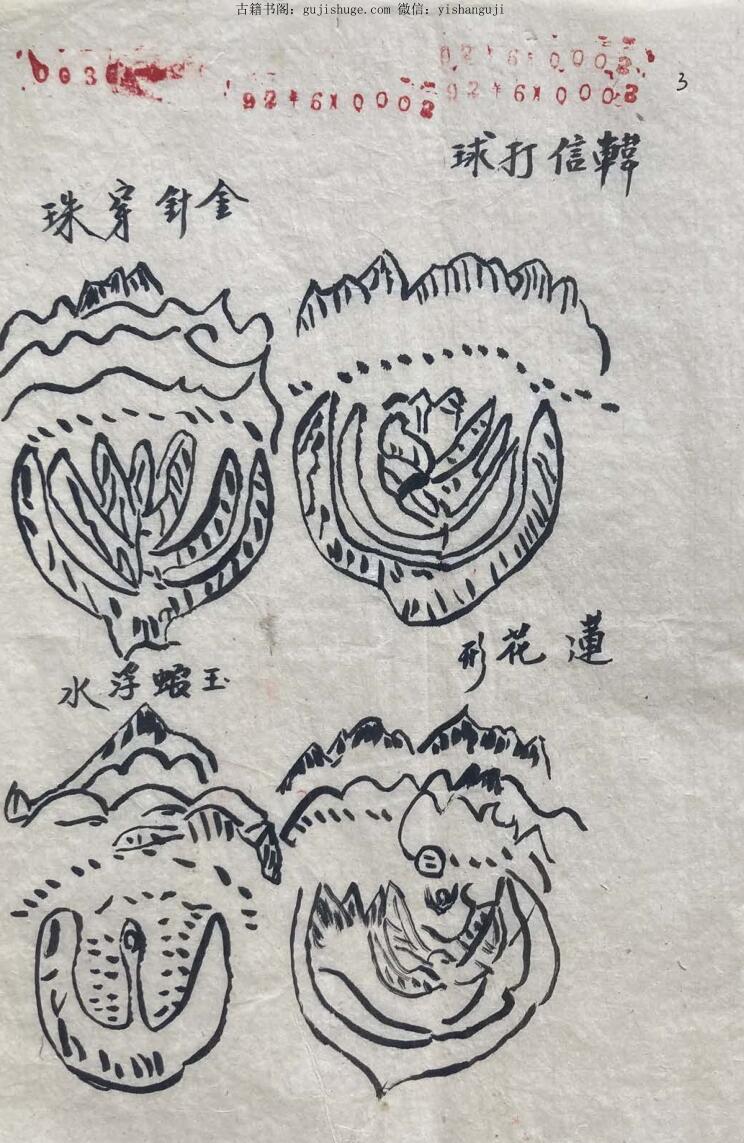 古籍书阁：gujishuge.com 微信：yishanguji
003
92#6*0002
92#6*0002
92#6*0002
3
韓信打球
金針穿珠
蓮花形
玉蝦浮水